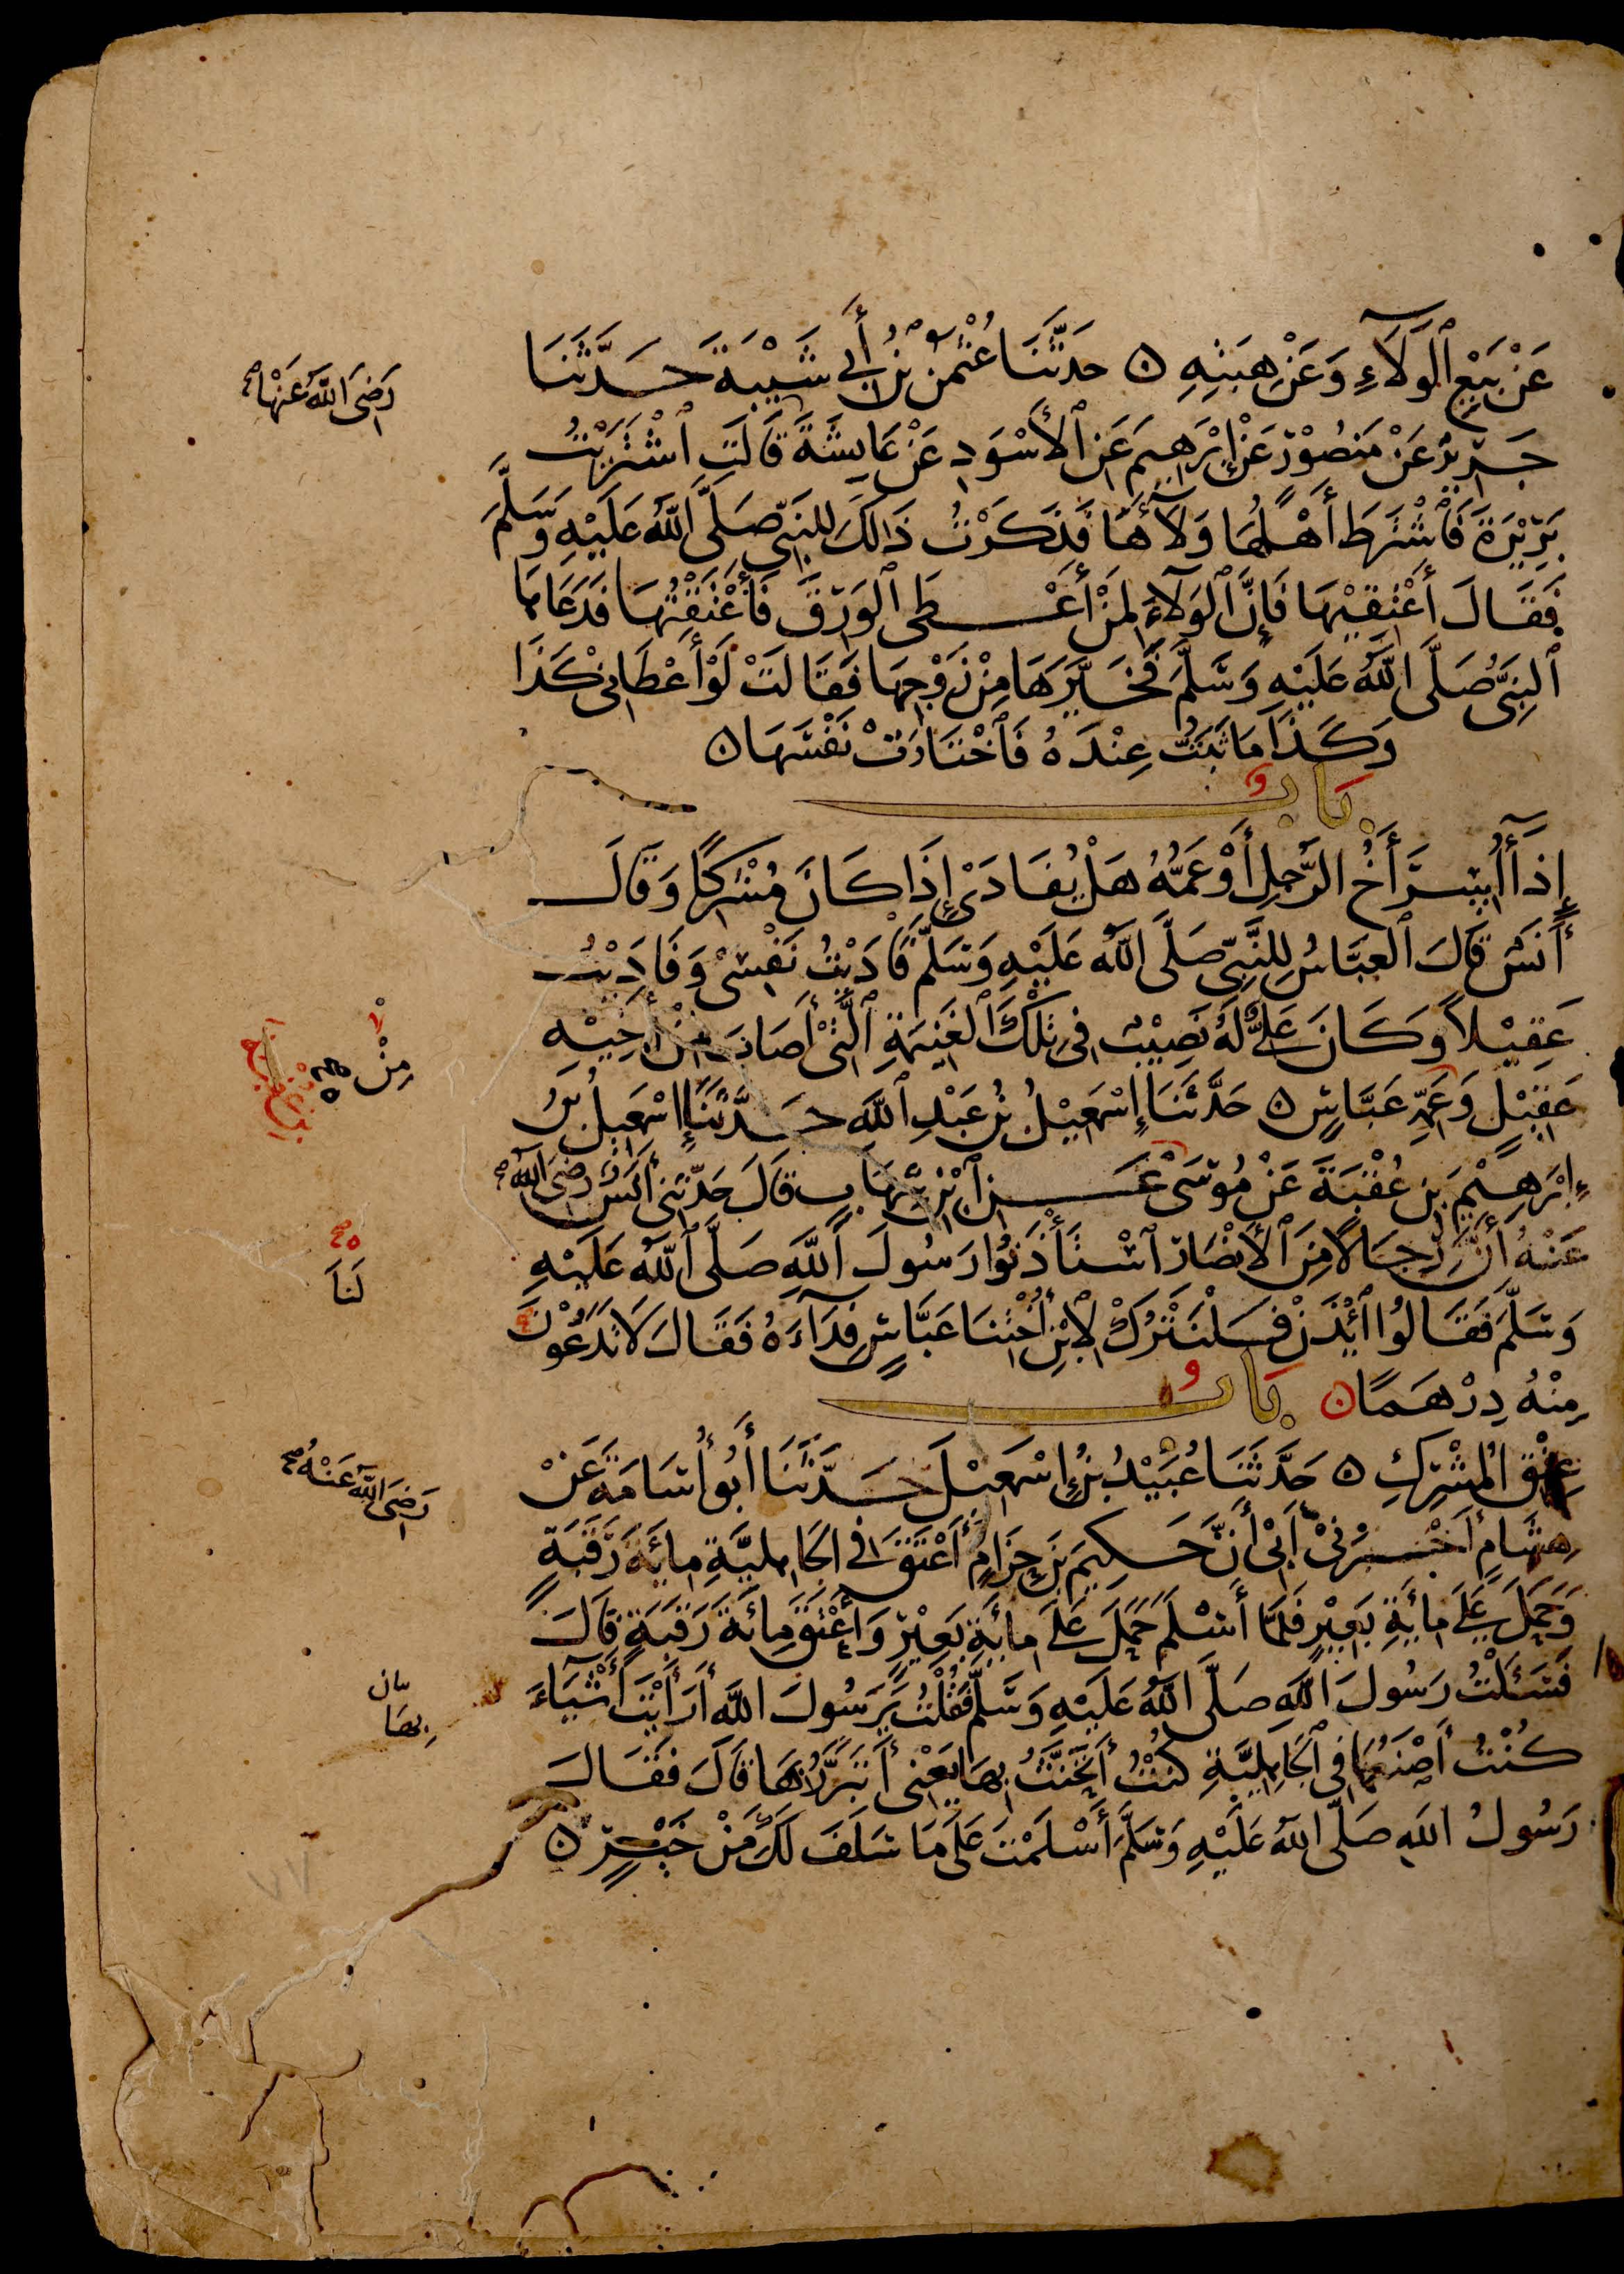 عَنْ بَيْعِ ٱلْوَلَآءِ وَعَنْ هِبَتِهِ ۝ حَدَّثَنَا عُثْمٰنُ بْنُ أَبِي شَيْبَةَ حَدَّثَنَا
رَضِىَ اللّٰهُ عَنْهَا صح
جَرِيْرٌ عَنْ مَنْصُوْرٍ عَنْ إِبْرَهِيْمَ عَنِ ٱلْأَسْوَدِ عَنْ عَايِشَةَ قَالَتِ ٱشْتَرَيْتُ
بَرِيْرَةَ فَٱشْتَرَطَ أَهْلُهَا وَلَآءَهَا فَذَكَرْتُ ذَالِكَ لِلنَّبِىِّ صَلَّى ٱللّٰهُ عَلَيْهِ وَسَلَّمَ
فَقَالَ أَعْتِقِيْهَا فَإِنَّ ٱلْوَلَآءَ لِمَنْ أَعْطَى ٱلْوَرِقَ فَأَعْتَقْتُهَا فَدَعَاهَا
ٱلنَّبِىُّ صَلَّى ٱللّٰهُ عَلَيْهِ وَسَلَّمَ فَخَيَّرَهَا مِنْ زَوْجِهَا فَقَالَتْ لَوْ أَعْطَانِىْ كَذَا
وَكَذَا مَا ثَبَتُّ عِنْدَهُ فَٱخْتَارَتْ نَفْسَهَا ۝
بَابٌ
إِذَآ أُسِرَ أَخُ الرَّجُلِ أَوْ عَمُّهُ هَلْ يُفَادَىْ إِذَا كَانَ مُشْرِكًا وَقَالَ
أَنَسٌ قَالَ ٱلْعَبَّاسُ لِلنَّبِىِّ صَلَّى ٱللّٰهُ عَلَيْهِ وَسَلَّمَ فَادَيْتُ نَفْسِىْ وَفَادَيْتُ
عَقِيْلاً وَكَانَ عَلِىٌّ لَهُ نَصِيْبٌ فِى تِلْكَ ٱلْغَنِيْمَةِ ٱلَّتِىْ أَصَابَ مِنْ أَخِيْهِ
مِنْ
عَقِيْلٍ وَعَمِّهِ عَبَّاسٍ ۝ حَدَّثَنَا إِسْمَعِيْلُ بْنُ عَبْدِ ٱللّٰهِ حَدَّثَنَا إِسْمَعِيلُ بْنُ
إِبْرَهِيْمَ بْنِ عُقْبَةَ عَنْ مُوْسَىْ عَنِ ٱبْنِ شِهَابٍ قَالَ حَدَّثَنِى أَنَسٌ رَضِىَ ٱللّٰهُ صح
عَنْهُ أَنَّ رِجَالًا مِنَ ٱلْأَنْصَارِ ٱسْتَأْذَنُوْا رَسُولَ ٱللّٰهِ صَلَّى ٱللّٰهُ عَلَيْهِ
لَنَا
وَسَلَّمَ فَقَالُوا ٱئْذَنْ فَلْنَتْرُكْ لِاِبْنِ أُخْتِنَا عَبَّاسٍ فِدَآءَهُ فَقَالَ لَا تَدَعُوْنَ
مِنْهُ دِرْهَمًا ۝ بَابُ
عِتْقِ الْمُشْرِكِ ۝ حَدَّثَنَا عُبَيْدُ بْنُ إِسْمَعِيْلَ حَدَّثَنَا أَبُوْ أُسَامَةَ عَنْ
رَضِىَ اللّٰهُ عَنْهُ صح
هِشَامٍ أَخْبَرَنِىْ أَبِىْ أَنَّ حَكِيمَ بْنَ حِزَامٍ أَعْتَقَ فِى الْجَاهِلِيَّةِ مِائَةَ رَقَبَةٍ
وَحَمَلَ عَلَى مِائَةِ بَعِيْرٍ فَلَمَّا أَسْلَمَ حَمَلَ عَلَى مِائَةِ بَعِيْرٍ وَأَعْتَقَ مِائَةَ رَقَبَةٍ قَالَ
فَسَئَلْتُ رَسُولَ ٱللّٰهِ صَلَّى ٱللّٰهُ عَلَيْهِ وَسَلَّمَ فَقُلْتُ يَرَسُولَ اللّٰهِ أَرَأَيْتَ أَشْيَآءَ
كُنْتُ أَصْنَعُهَا فِى ٱلْجَاهِلِيَّةِ كُنْتُ أَتَحَنَّثُ بِهَا يَعْنِى أَتَبَرَّرُ بِهَا قَالَ فَقَالَ
رَسُولُ اللّٰهِ صَلَّى اللّٰهُ عَلَيْهِ وَسَلَّمَ أَسْلَمْتَ عَلَى مَا سَلَفَ لَكَ مِنْ خَيْرٍ ۝
٧٧